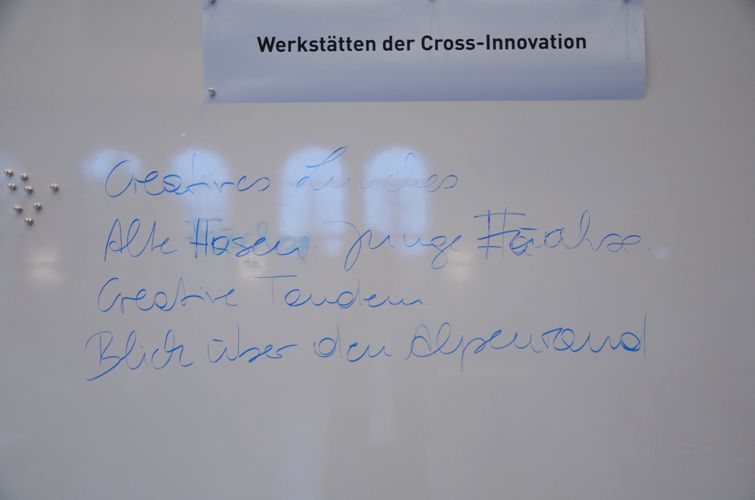 Werkstätten der Cross-Innovation
Creatives Lunches
Alte Hasen Junge
Creative Tandem
Blick über den Alpenrand